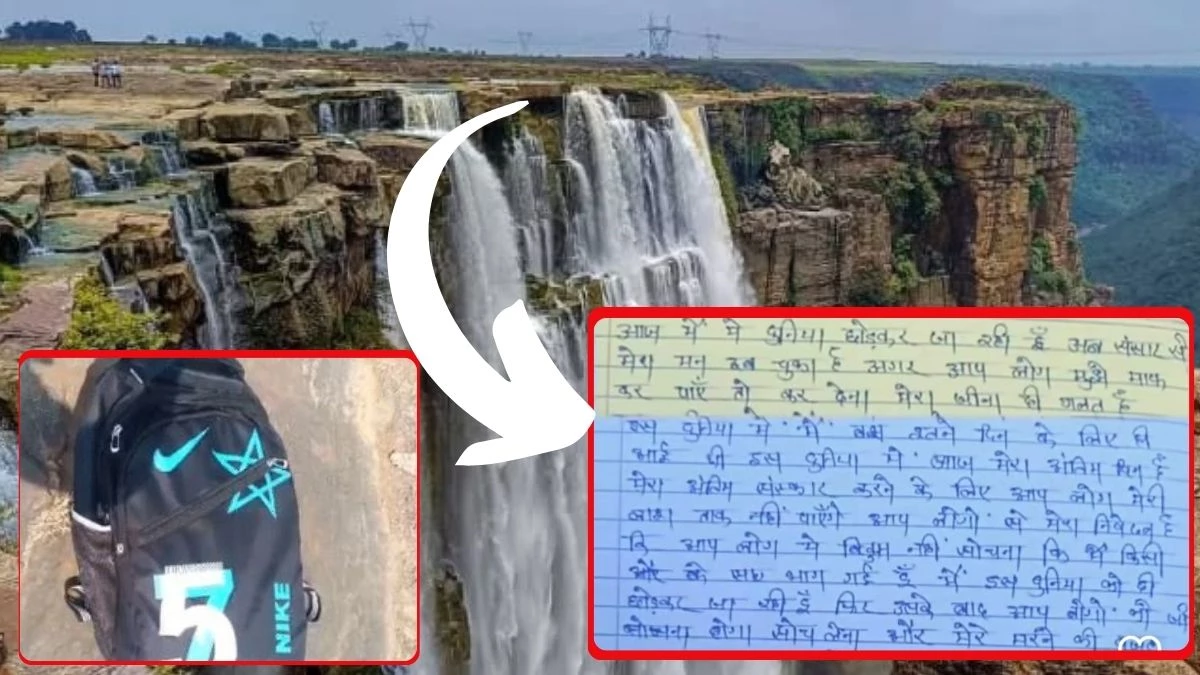 5
NIKE
आज में मे दुनिया छोड़कर जा रही हूँ अब संसार से
मेरा मन उब चुका है अगर आप लोग मुझे माफ
कर पाएँ तो कर देना मेरा जीना ही गलत है
इस दुनिया मे में बस इतने दिन के लिए ही
आई थी इस दुनिया में आज मेरा अंतिम दिन है
मेरा अंतिम संस्कार करने के लिए आप लोग मेरी
लाश तक नहीं पाएँगे आप लोगों से मेरा निवेदन है
कि आप लोग ये नहीं सोचना कि किसी
और के साथ भाग गई हूँ में इस दुनिया को ही
छोड़कर जा रही हूँ फिर उसके बाद आप लोगों को जो
सोचना होगा सोच लेना और मेरे मरने की